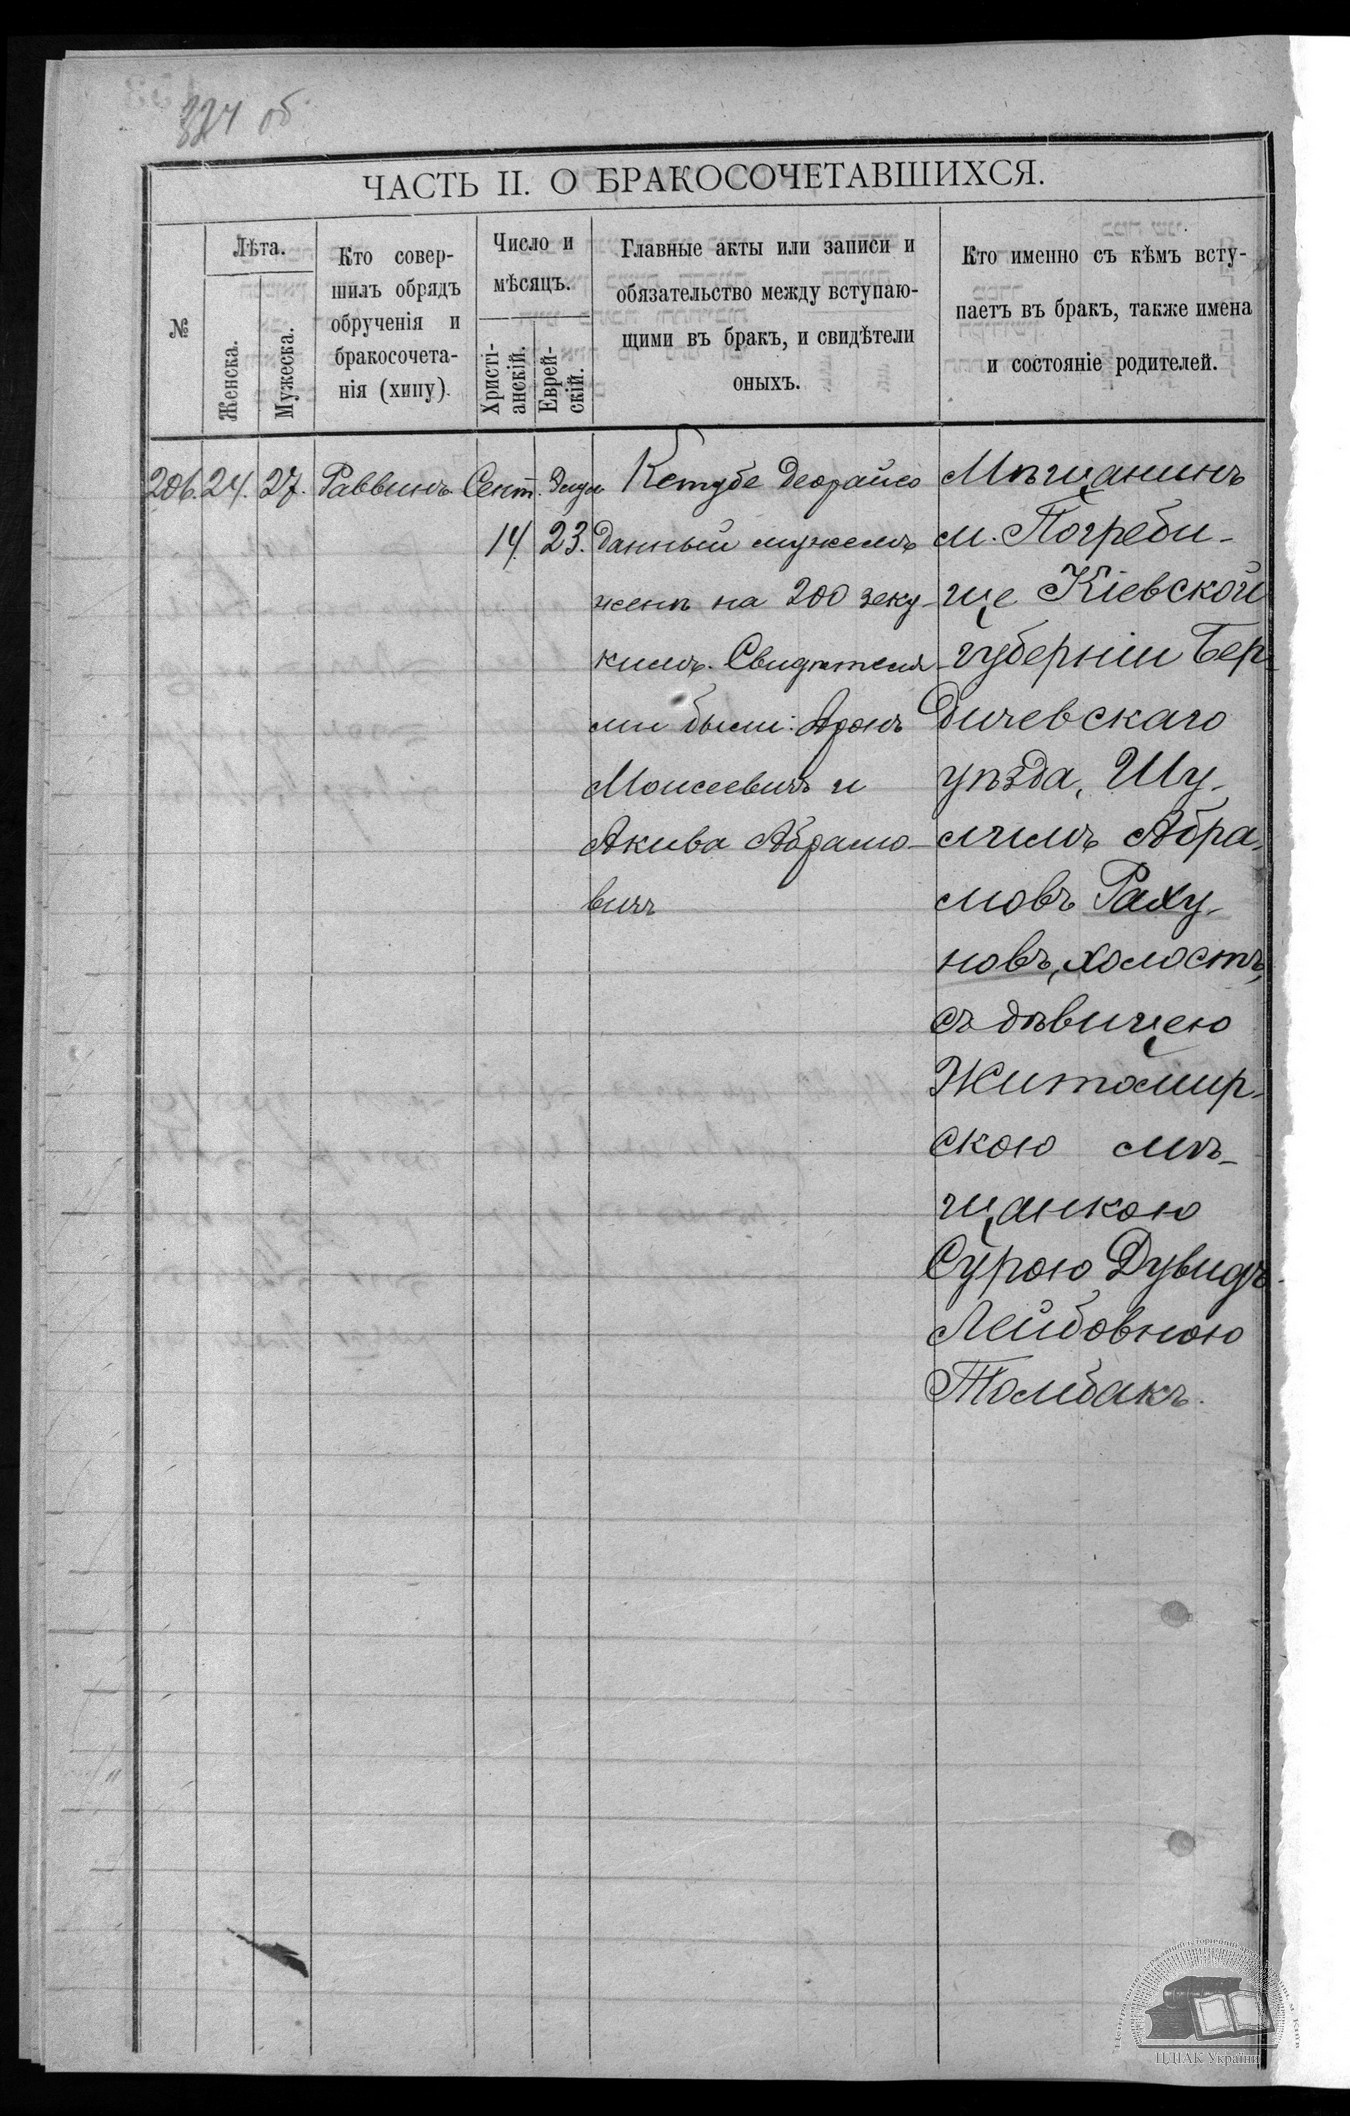 324 об
ЧАСТЬ II. О БРАКОСОЧЕТАВШИХСЯ.
№
Лѣта.
Женска.
Мужеска.
Кто совер-
шилъ обрядъ
обрученія и
бракосочета-
нія (хипу).
Число и
мѣсяцъ.
Христі-
анскій.
Еврей-
скій.
Главные акты или записи и
обязательство между вступаю-
щими въ бракъ, и свидѣтели
оныхъ.
Кто именно съ кѣмъ всту-
паетъ въ бракъ, также имена
и состояніе родителей.
206. 24. 27. Раввинъ Сент. Элул
14. 23.
Кетубе деорайсо
данный мужемъ
женѣ на 200 зеку-
кимъ. Свидѣтеля-
ми были: Аронъ
Моисеевичъ и
Акива Абрамо-
вичъ
Мѣщанинъ
м. Погреби-
ще Кіевской
губерніи Бер-
дичевскаго
уѣзда, Шу-
лимъ Абра-
мовъ Раху-
новъ, холостъ,
съ дѣвицею
Житомир-
скою мѣ-
щанкою
Сурою Дувидъ-
Лейбовною
Толбакъ.
ЦДІАК України